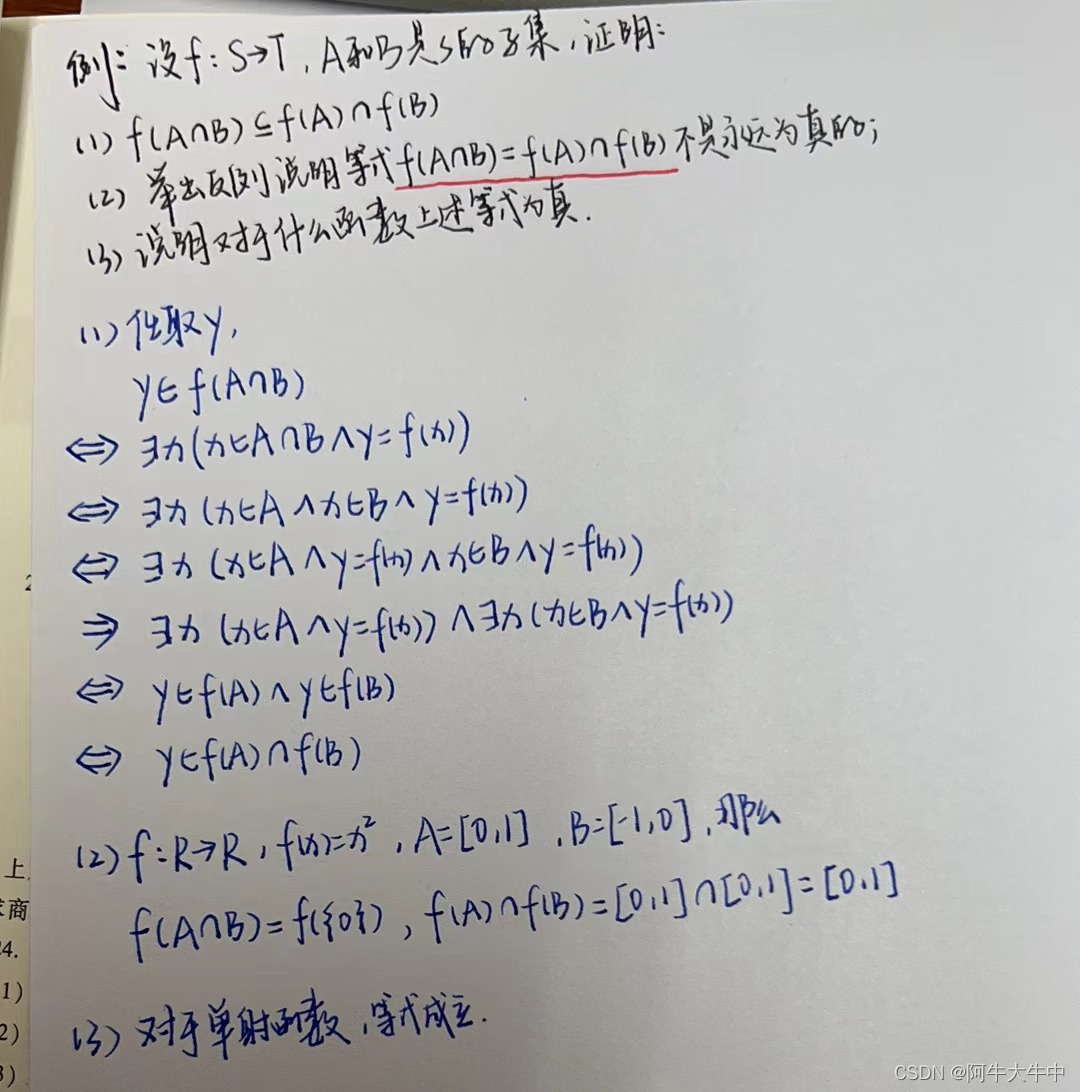 例:设f:S→T,A和B是S的子集,证明:
(1) f(A∩B)⊆f(A)∩f(B)
(2) 举出反例说明等式f(A∩B)=f(A)∩f(B)不是永远为真的;
(3) 说明对于什么函数上述等式为真.
(1) 任取y,
y∈f(A∩B)
⇔ ∃x(x∈A∩B∧y=f(x))
⇔ ∃x(x∈A∧x∈B∧y=f(x))
⇔ ∃x(x∈A∧y=f(x)∧x∈B∧y=f(x))
⇒ ∃x(x∈A∧y=f(x))∧∃x(x∈B∧y=f(x))
⇔ y∈f(A)∧y∈f(B)
⇔ y∈f(A)∩f(B)
(2) f:R→R,f(x)=x²,A=[0,1],B=[-1,0],那么
f(A∩B)=f({0}),f(A)∩f(B)=[0,1]∩[0,1]=[0,1]
(3) 对于单射函数,等式成立.
上
商
4.
1)
2)
3)
CSDN @阿牛大牛中